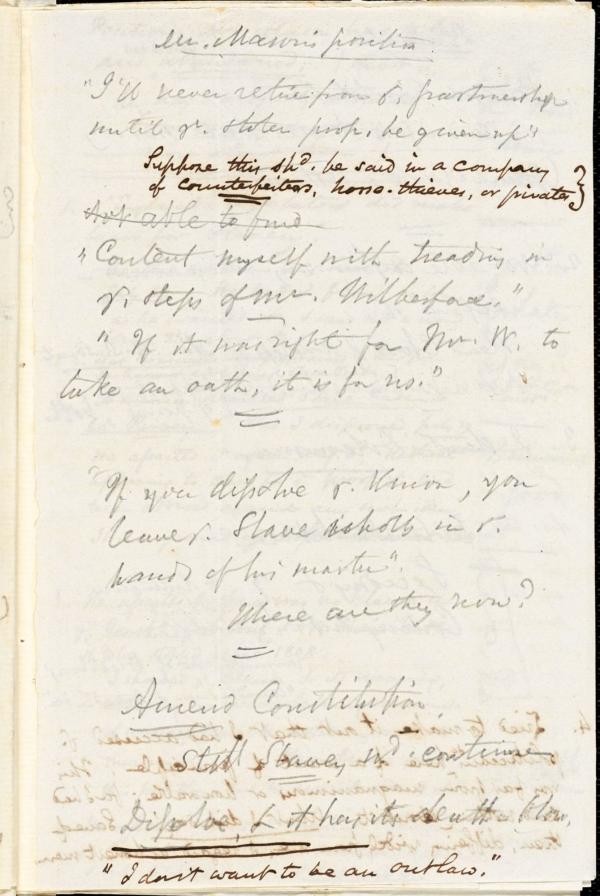 Mr. Mason's position.
"I'll never retire from ye. partnership
until ye. stolen prop. be given up"
Suppose this shd. be said in a company
of counterfeiters, horse-thieves, or pirates }
Not able to find
"Content myself with treading in
ye. steps of Mr. Wilberforce."
"If it was right for Mr. W. to
take an oath, it is for us."
"If you dissolve ye. Union, you
leave ye. Slave in ye.
hands of his master".
Where are they now?
Amend Constitution
Still Slavery shd. continue
Dissolve, & it has its death blow.
"I don't want to be an outlaw."